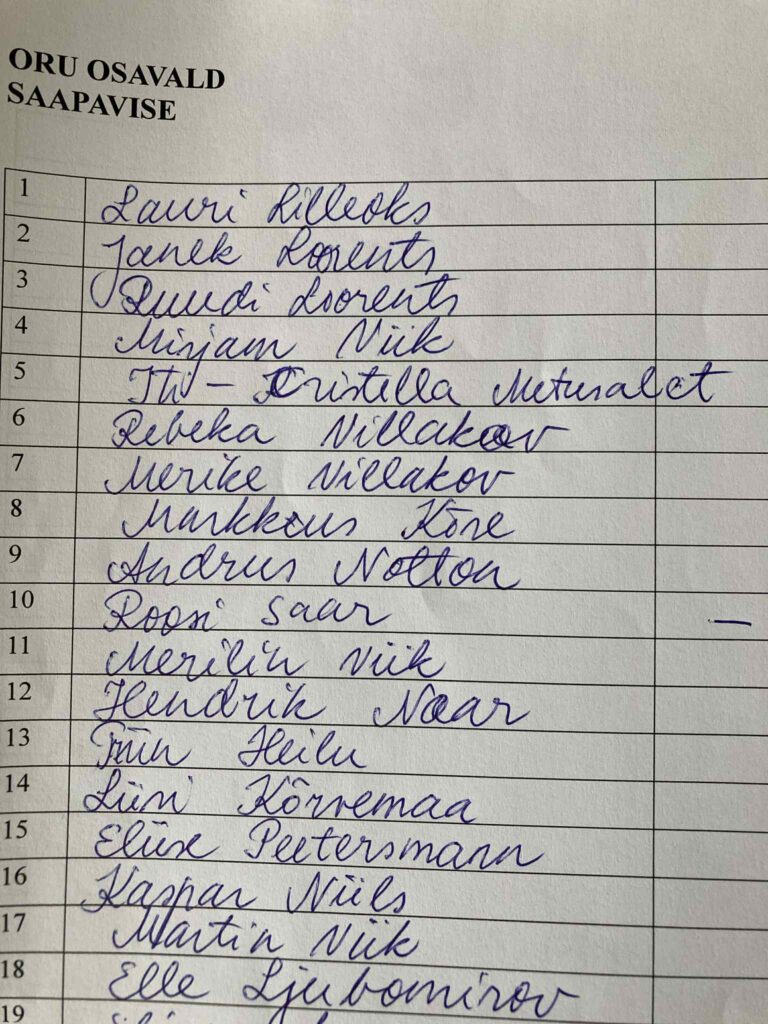 ORU OSAVALD
SAAPAVISE
1 Lauri Lilleoks
2 Janek Loorents
3 Ruudi Loorents
4 Mirjam Niik
5 Kristella Metusalet
6 Rebeka Nillakov
7 Merike Nillakov
8 Markkus Kõre
9 Andrus Notton
10 Roosi Saar —
11 Merilin Niik
12 Hendrik Naar
13 Triin Heilu
14 Liisi Kõrvemaa
15 Eliise Peetersmann
16 Kaspar Niils
17 Martin Niik
18 Elle Ljubomirov
19